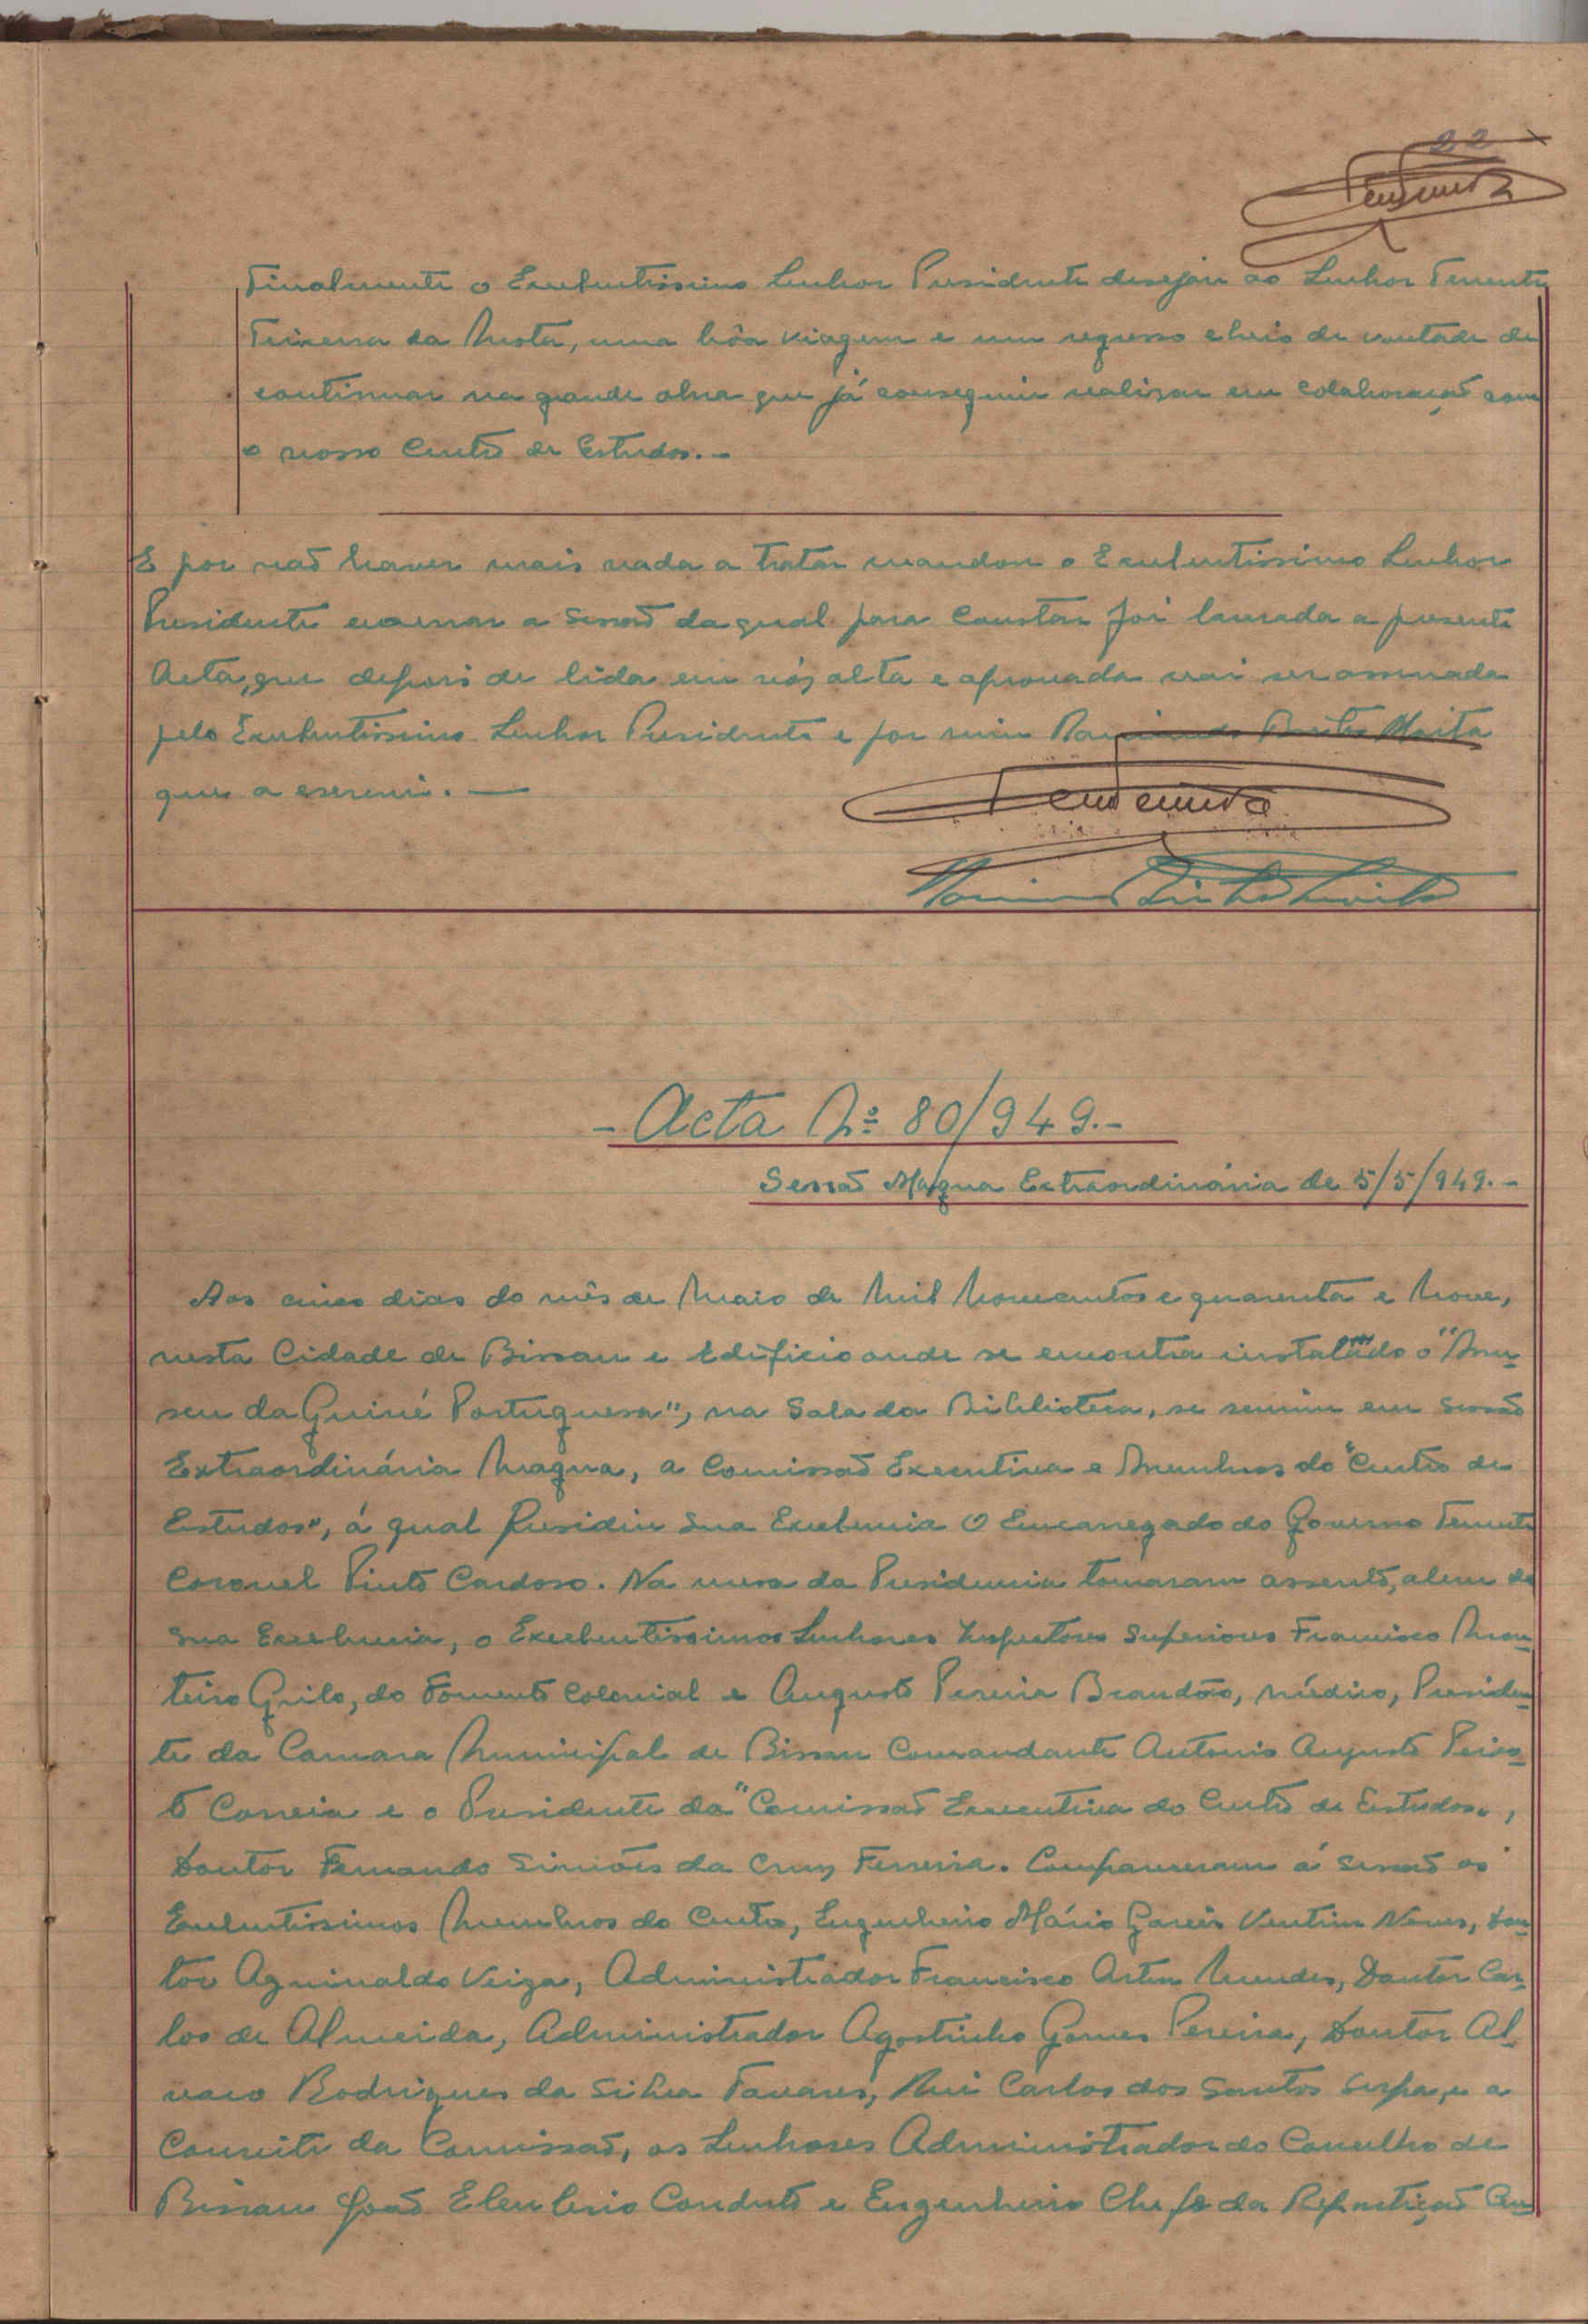 22
Finalmente o Excelentissimo Senhor Presidente desejou ao Senhor Tenente
Teixeira da Mota, uma bôa viagem e um regresso cheio de vontade de
continuar na grande obra que já conseguiu realizar em colaboração com
o nosso Centro de Estudos.-
E por não haver mais nada a tratar mandou o Excelentissimo Senhor
Presidente encerrar a sessão da qual para constar foi lavrada a presente
Acta, que depois de lida em vóz alta e aprovada vai ser assinada
pelo Excelentissimo Senhor Presidente e por mim
que a escrevi.—
- Acta Nº 80/949.-
Sessão Magna Extraordinária de 5/5/949.-
Aos cinco dias do mês de Maio de Mil Novecentos e quarenta e Nove,
nesta Cidade de Bissau e Edificio onde se encontra instalado o "Mu-
seu da Guiné Portuguesa", na Sala da Biblioteca, se reuniu em sessão
Extraordinária Magna, a Comissão Executiva e Membros do "Centro de
Estudos", á qual Presidiu Sua Excelencia O Encarregado do Governo Tenente
Coronel Pinto Cardoso. Na mesa da Presidencia tomaram assento, alem de
Sua Excelencia, o Excelentissimos Senhores Inspectores Superiores Francisco Mon-
teiro Grilo, do Fomento Colonial e Augusto Pereira Brandão, médico, Presiden-
te da Camara Municipal de Bissau Comandante Antonio Augusto Peixo-
to Correia e o Presidente da "Comissão Executiva do Centro de Estudos",
Doutor Fernando Simões da Cruz Ferreira. Compareceram á sessão os
Excelentissimos Membros do Centro, Engenheiro Mário Garcia Ventim Neves, Dou-
tor Aguinaldo Veiga, Administrador Francisco Artur Mendes, Doutor Car-
los de Almeida, Administrador Agostinho Gomes Pereira, Doutor Al-
varo Rodrigues da Silva Tavares, Rui Carlos dos Santos Serpa, e a
Convite da Comissão, os Senhores Administrador do Concelho de
Bissau João Eleuterio Conduto e Engenheiro Chefe da Repartição